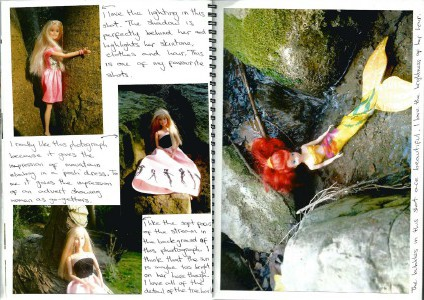 I love the lighting in this
shot. The shadow is
perfectly behind her and
highlights her skintone,
clothes and hair. This
is one of my favourite
shots.
I really like this photograph
because it gives the
impression of mountains
climbing in a posh dress. To
me it gives the impression
of an advert showing
women as go-getters
I like the soft focus
of the stream in
the background of
this photograph. I
think that the sun
is maybe too bright
on her face though.
I love all of the
detail of the tree bark.
The in this shot are beautiful. I love the brightness of her hair.